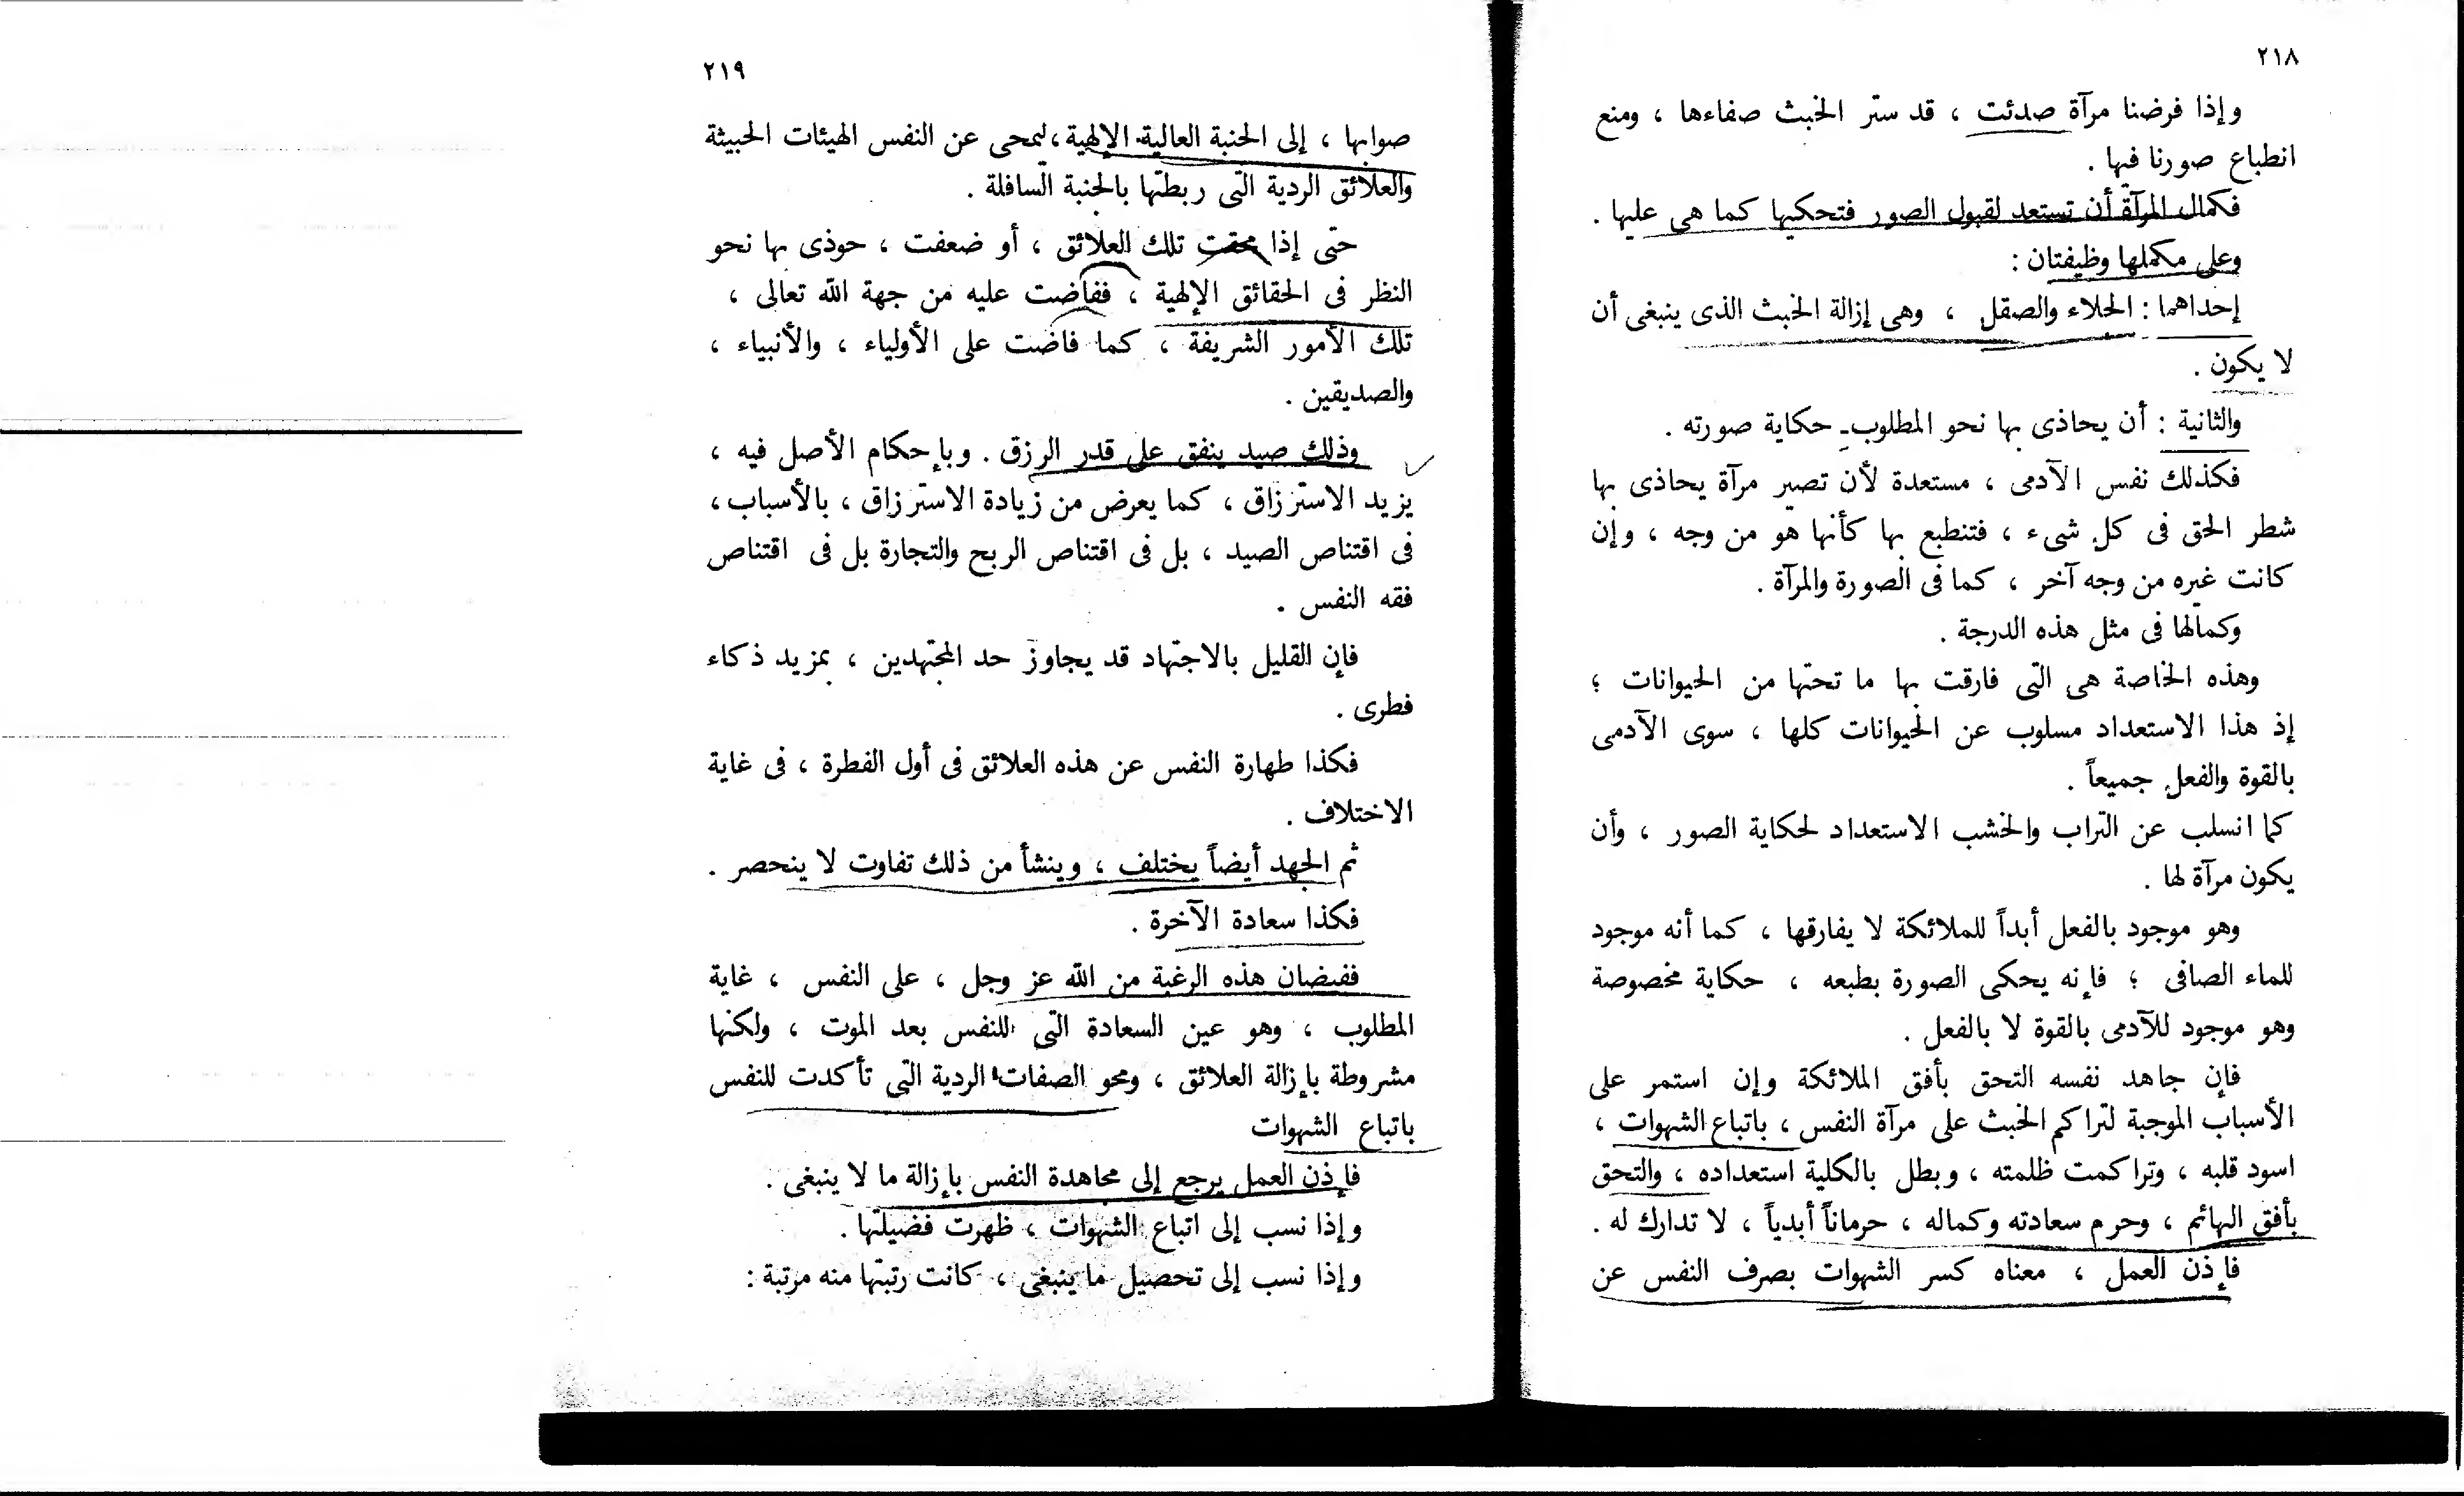 ٢١٨
وإذا فرضنا مرآة صدئت ، قد ستر الخبث صفاءها ، ومنع
انطباع صورنا فيها .
فكمال المرآة أن تستعد لقبول الصور فتحكيها كما هى عليها .
وعلى مكملها وظيفتان :
إحداهما : الجلاء والصقل ، وهى إزالة الخبث الذى ينبغى أن
لا يكون .
والثانية : أن يحاذى بها نحو المطلوب حكاية صورته .
فكذلك نفس الآدمى ، مستعدة لأن تصير مرآة يحاذى بها
شطر الحق فى كل شىء ، فتنطبع بها كأنها هو من وجه ، وإن
كانت غيره من وجه آخر ، كما فى الصورة والمرآة .
وكمالها فى مثل هذه الدرجة .
وهذه الخاصة هى التى فارقت بها ما تحتها من الحيوانات ؛
إذ هذا الاستعداد مسلوب عن الحيوانات كلها ، سوى الآدمى
بالقوة والفعل جميعاً .
كما انسلب عن التراب والخشب الاستعداد لحكاية الصور ، وأن
يكون مرآة لها .
وهو موجود بالفعل أبداً للملائكة لا يفارقها ، كما أنه موجود
للماء الصافى ؛ فإنه يحكى الصورة بطبعه ، حكاية مخصوصة
وهو موجود للآدمى بالقوة لا بالفعل .
فإن جاهد نفسه التحق بأفق الملائكة وإن استمر على
الأسباب الموجبة لتراكم الخبث على مرآة النفس ، باتباع الشهوات ،
اسود قلبه ، وتراكمت ظلمته ، وبطل بالكلية استعداده ، والتحق
بأفق البهائم ، وحرم سعادته وكماله ، حرماناً أبدياً ، لا تدارك له .
فإذن العمل ، معناه كسر الشهوات بصرف النفس عن
٢١٩
صوابها ، إلى الجنبة العالية الإلهية ، ليمحى عن النفس الهيئات الخبيثة
والعلائق الردية التى ربطتها بالجنبة السافلة .
حتى إذا محقت تلك العلائق ، أو ضعفت ، حوذى بها نحو
النظر فى الحقائق الإلهية ، ففاضت عليه من جهة الله تعالى ،
تلك الأمور الشريفة ، كما فاضت على الأولياء ، والأنبياء ،
والصديقين .
وذلك صيد ينفق على قدر الرزق . وبإحكام الأصل فيه ،
يزيد الاسترزاق ، كما يعرض من زيادة الاسترزاق ، بالأسباب ،
فى اقتناص الصيد ، بل فى اقتناص الربح والتجارة بل فى اقتناص
فقه النفس .
فإن القليل بالاجتهاد قد يجاوز حد المجتهدين ، بمزيد ذكاء
فطرى .
فكذا طهارة النفس عن هذه العلائق فى أول الفطرة ، فى غاية
الاختلاف .
ثم الجهد أيضاً يختلف ، وينشأ من ذلك تفاوت لا ينحصر .
فكذا سعادة الآخرة .
ففيضان هذه الرغبة من الله عز وجل ، على النفس ، غاية
المطلوب ، وهو عين السعادة التى للنفس بعد الموت ، ولكنها
مشروطة بإزالة العلائق ، ومحو الصفات الردية التى تأكدت للنفس
باتباع الشهوات
فإذن العمل يرجع إلى مجاهدة النفس بإزالة ما لا ينبغى .
وإذا نسب إلى اتباع الشهوات ، ظهرت فضيلتها .
وإذا نسب إلى تحصيل ما ينبغى ، كانت رتبتها منه مرتبة :